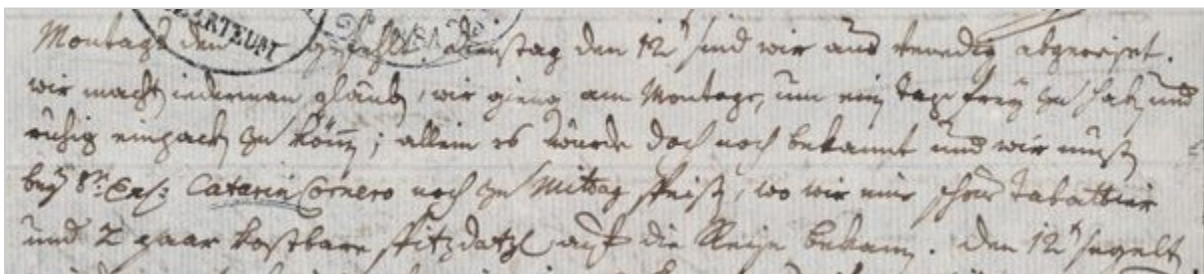 Montags den gefehlt. Dienstag den 12t sind wir aus Venedig abgereiset.
wir macht iederman glaub, wir gieng am Montage, um ein tag frey zu hab und
ruhig einpack zu könn; allein es wurde doch noch bekannt und wir muß
bey Sr: Exc: Catarin Cornero noch zu Mittag speiß, wo wir eine schöne Tabattier
und 2 paar kostbare spitzdatzl auf die Reise bekam. Den 12t segelt